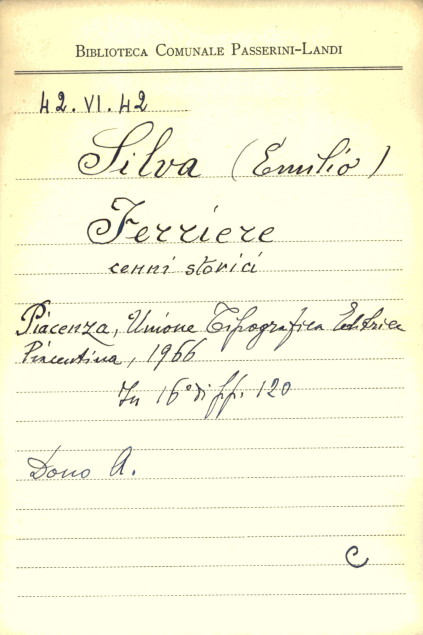 BIBLIOTECA COMUNALE PASSERINI-LANDI
42.VI.42
Silva (Emilio)
Ferriere
cenni storici
Piacenza, Unione Tipografica Editrice
Piacentina, 1966
In 16° di pp. 120
Dono A.
C